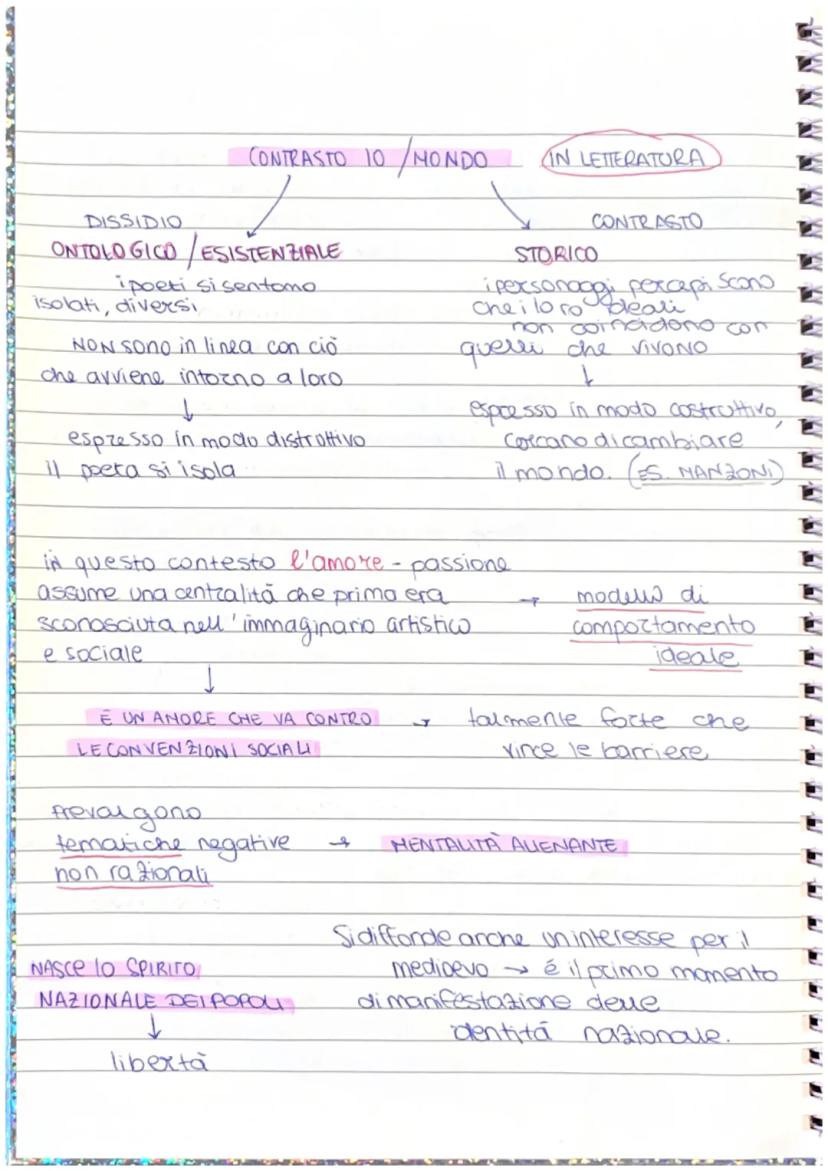 CONTRASTO IO / MONDO IN LETTERATURA
DISSIDIO
ONTOLOGICO / ESISTENZIALE
i poeti si sentono
isolati, diversi
NON sono in linea con ciò
che avviene intorno a loro
↓
espresso in modo distruttivo
il poeta si isola
CONTRASTO
STORICO
i personaggi percepiscono
che i loro ideali
non coincidono con
quelli che vivono
↓
espresso in modo costruttivo,
cercano di cambiare
il mondo. (ES. MANZONI)
in questo contesto l'amore - passione
assume una centralità che prima era
sconosciuta nell'immaginario artistico
e sociale
→ modello di
comportamento
ideale
↓
É UN AMORE CHE VA CONTRO
LE CONVENZIONI SOCIALI
→ talmente forte che
vince le barriere
Prevalgono
tematiche negative → MENTALITÀ ALIENANTE
non razionali
NASCE lo SPIRITO
NAZIONALE DEI POPOLI
↓
libertà
Si diffonde anche un interesse per il
medioevo → é il primo momento
di manifestazione delle
identità nazionale.